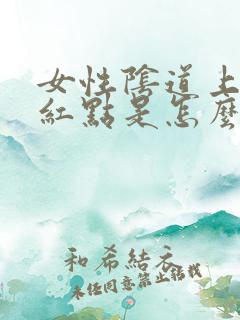 女性陰道上
紅點是怎麼
和希結衣
未经同意禁止转载